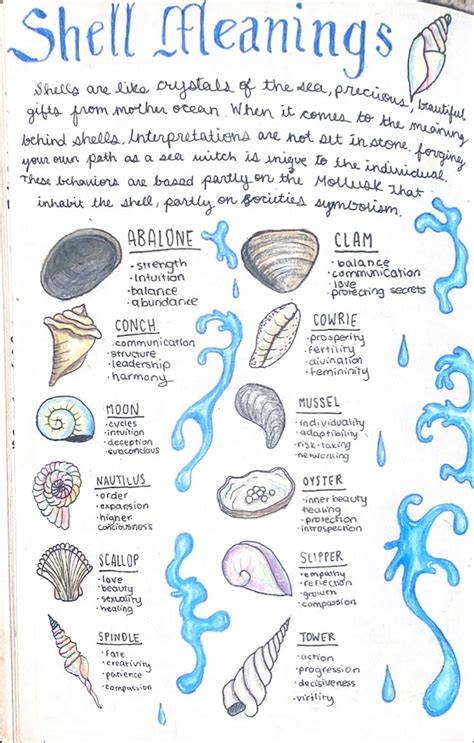 Shell Meanings
Shells are like crystals of the sea, precious, beautiful
gifts from mother ocean. When it comes to the meaning
behind shells, Interpretations are not set in stone. forging
your own path as a sea witch is uniqe to the individual.
These behaviors are based partly on the Mollusk That
inhabit the shell, partly on societies symbolism.
ABALONE
• strength
• Intuition
• balance
• abundance
CLAM
• balance
• communication
• love
• protecting secrets
CONCH
• communication
• structure
• leadership
• harmony
COWRIE
• prosperity
• fertility
• divination
• femininity
MOON
• cycles
• intuition
• deception
• subconscious
MUSSEL
• individuality
• adaptibility
• risk-taking
• networking
NAUTILUS
• order
• expansion
• higher
consiousness
OYSTER
• inner beauty
• healing
• protection
• introspection
SCALLOP
• love
• beauty
• sexuality
• healing
SLIPPER
• empathy
• reflection
• growth
• compassion
SPINDLE
• Fate
• creativity
• patience
• compassion
TOWER
• action
• progression
• decisiveness
• virility